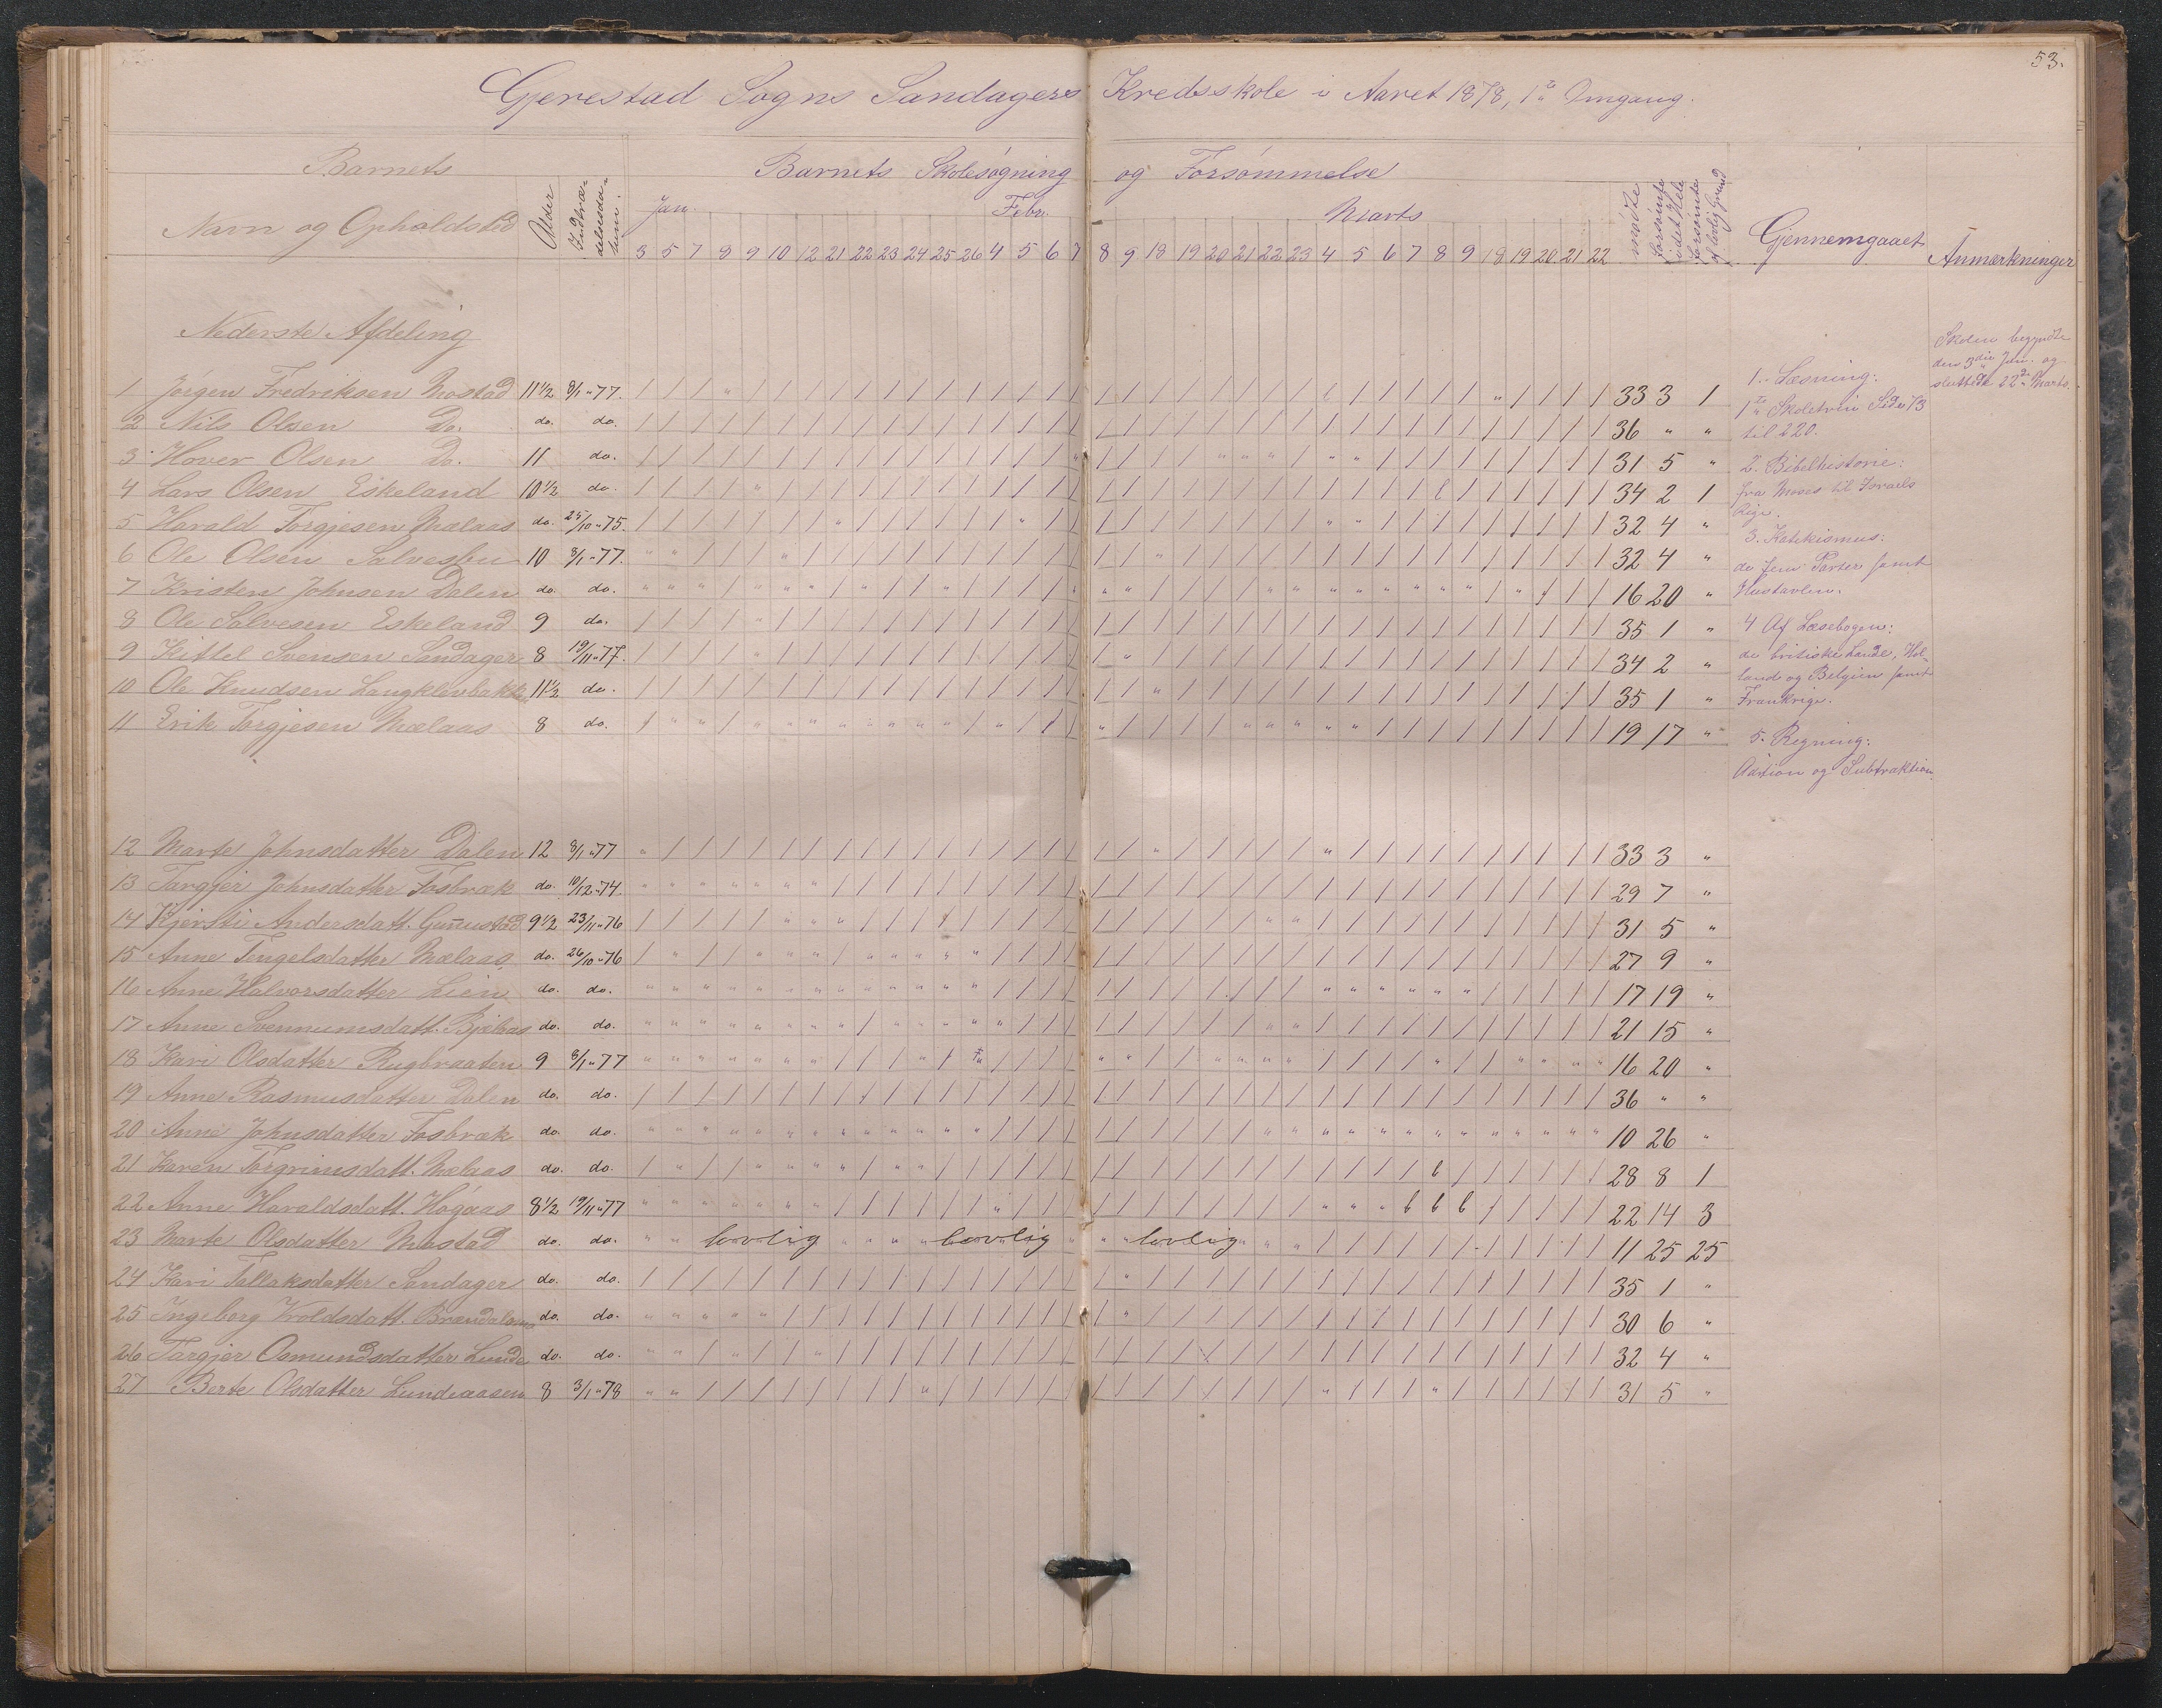 53.
Gjerestad Sogns Sandagers Kredsskole i Aaret 1878, 1ste Omgang.
Barnets
Navn og Opholdsted
Alder
Indtrædelsesdatum.
Barnets Skolesøgning og Forsømmelse
Jan. Febr. Marts
3 5 7 8 9 10 12 21 22 23 24 25 26 4 5 6 7 8 9 18 19 20 21 22 23 4 5 6 7 8 9 18 19 20 21 22
mødte
forsømte i det Hele
forsømte af lovlig Grund
Gjennemgaaet
Anmærkninger
Nederste Afdeling
1 Jørgen Fredriksen Mostad 11 1/2 8/1 "77. 33 3 1
2 Nils Olsen Do. do. do. 36 " "
3 Hover Olsen Do. 11 do. 31 5 "
4 Lars Olsen Eskeland 10 1/2 do. 34 2 1
5 Harald Torgjesen Mælaas do. 25/10 "75. 32 4 "
6 Ole Olsen Salvesbu 10 8/1 "77. 32 4 "
7 Kristen Johnsen Dalen do. do. 16 20 "
8 Ole Salvesen Eskeland 9 do. 35 1 "
9 Kittel Svensen Sandager 8 19/11 "77. 34 2 "
10 Ole Knudsen Langklevbakk 11 1/2 do. 35 1 "
11 Erik Torgjesen Mælaas 8 do. 19 17 "
12 Marte Johnsdatter Dalen 12 8/1 "77 33 3 "
13 Targjer Johnsdatter Fosbræk do. 10/12 "74. 29 7 "
14 Kjersti Andersdatt. Gunnustad 9 1/2 23/11 "76 31 5 "
15 Anne Tengelsdatter Mælaas do. 26/10 "76 27 9 "
16 Anne Halvorsdatter Lien do. do. 17 19 "
17 Anne Svennumsdatt. Bjelaas do. do. 21 15 "
18 Kari Olsdatter Rugbraaten 9 8/1 "77 16 20 "
19 Anne Rasmusdatter Dalen do. do. 36 " "
20 Anne Johnsdatter Fosbræk do. do. 10 26 "
21 Karen Torgrimsdatt. Mælaas do. do. 28 8 1
22 Anne Haraldsdatt. Høgaas 8 1/2 19/11 "77 22 14 3
23 Marte Olsdatter Mostad do. do. lovlig lovlig lovlig 11 25 25
24 Kari Tallaksdatter Sandager do. do. 35 1 "
25 Ingeborg Vroldsdatt. do. do. 30 6 "
26 Targjer Osmundsdatter Lunde do. do. 32 4 "
27 Berte Olsdatter Lundeaasen 8 3/1 "78 31 5 "
1. Læsning:
1ste Skoletrin Side 73
til 220.
2. Bibelhistorie:
fra Moses til Israels
Rige.
3. Katekismus:
de fem Parter samt
Hustavlen.
4 Af Læsebogen:
de britiske Lande, Hol-
land og Belgien samt
Frankrige.
5. Regning:
Adition og Subtraktion.
Skolen begyndte
den 3die Jan. og
sluttede 22de Marts.